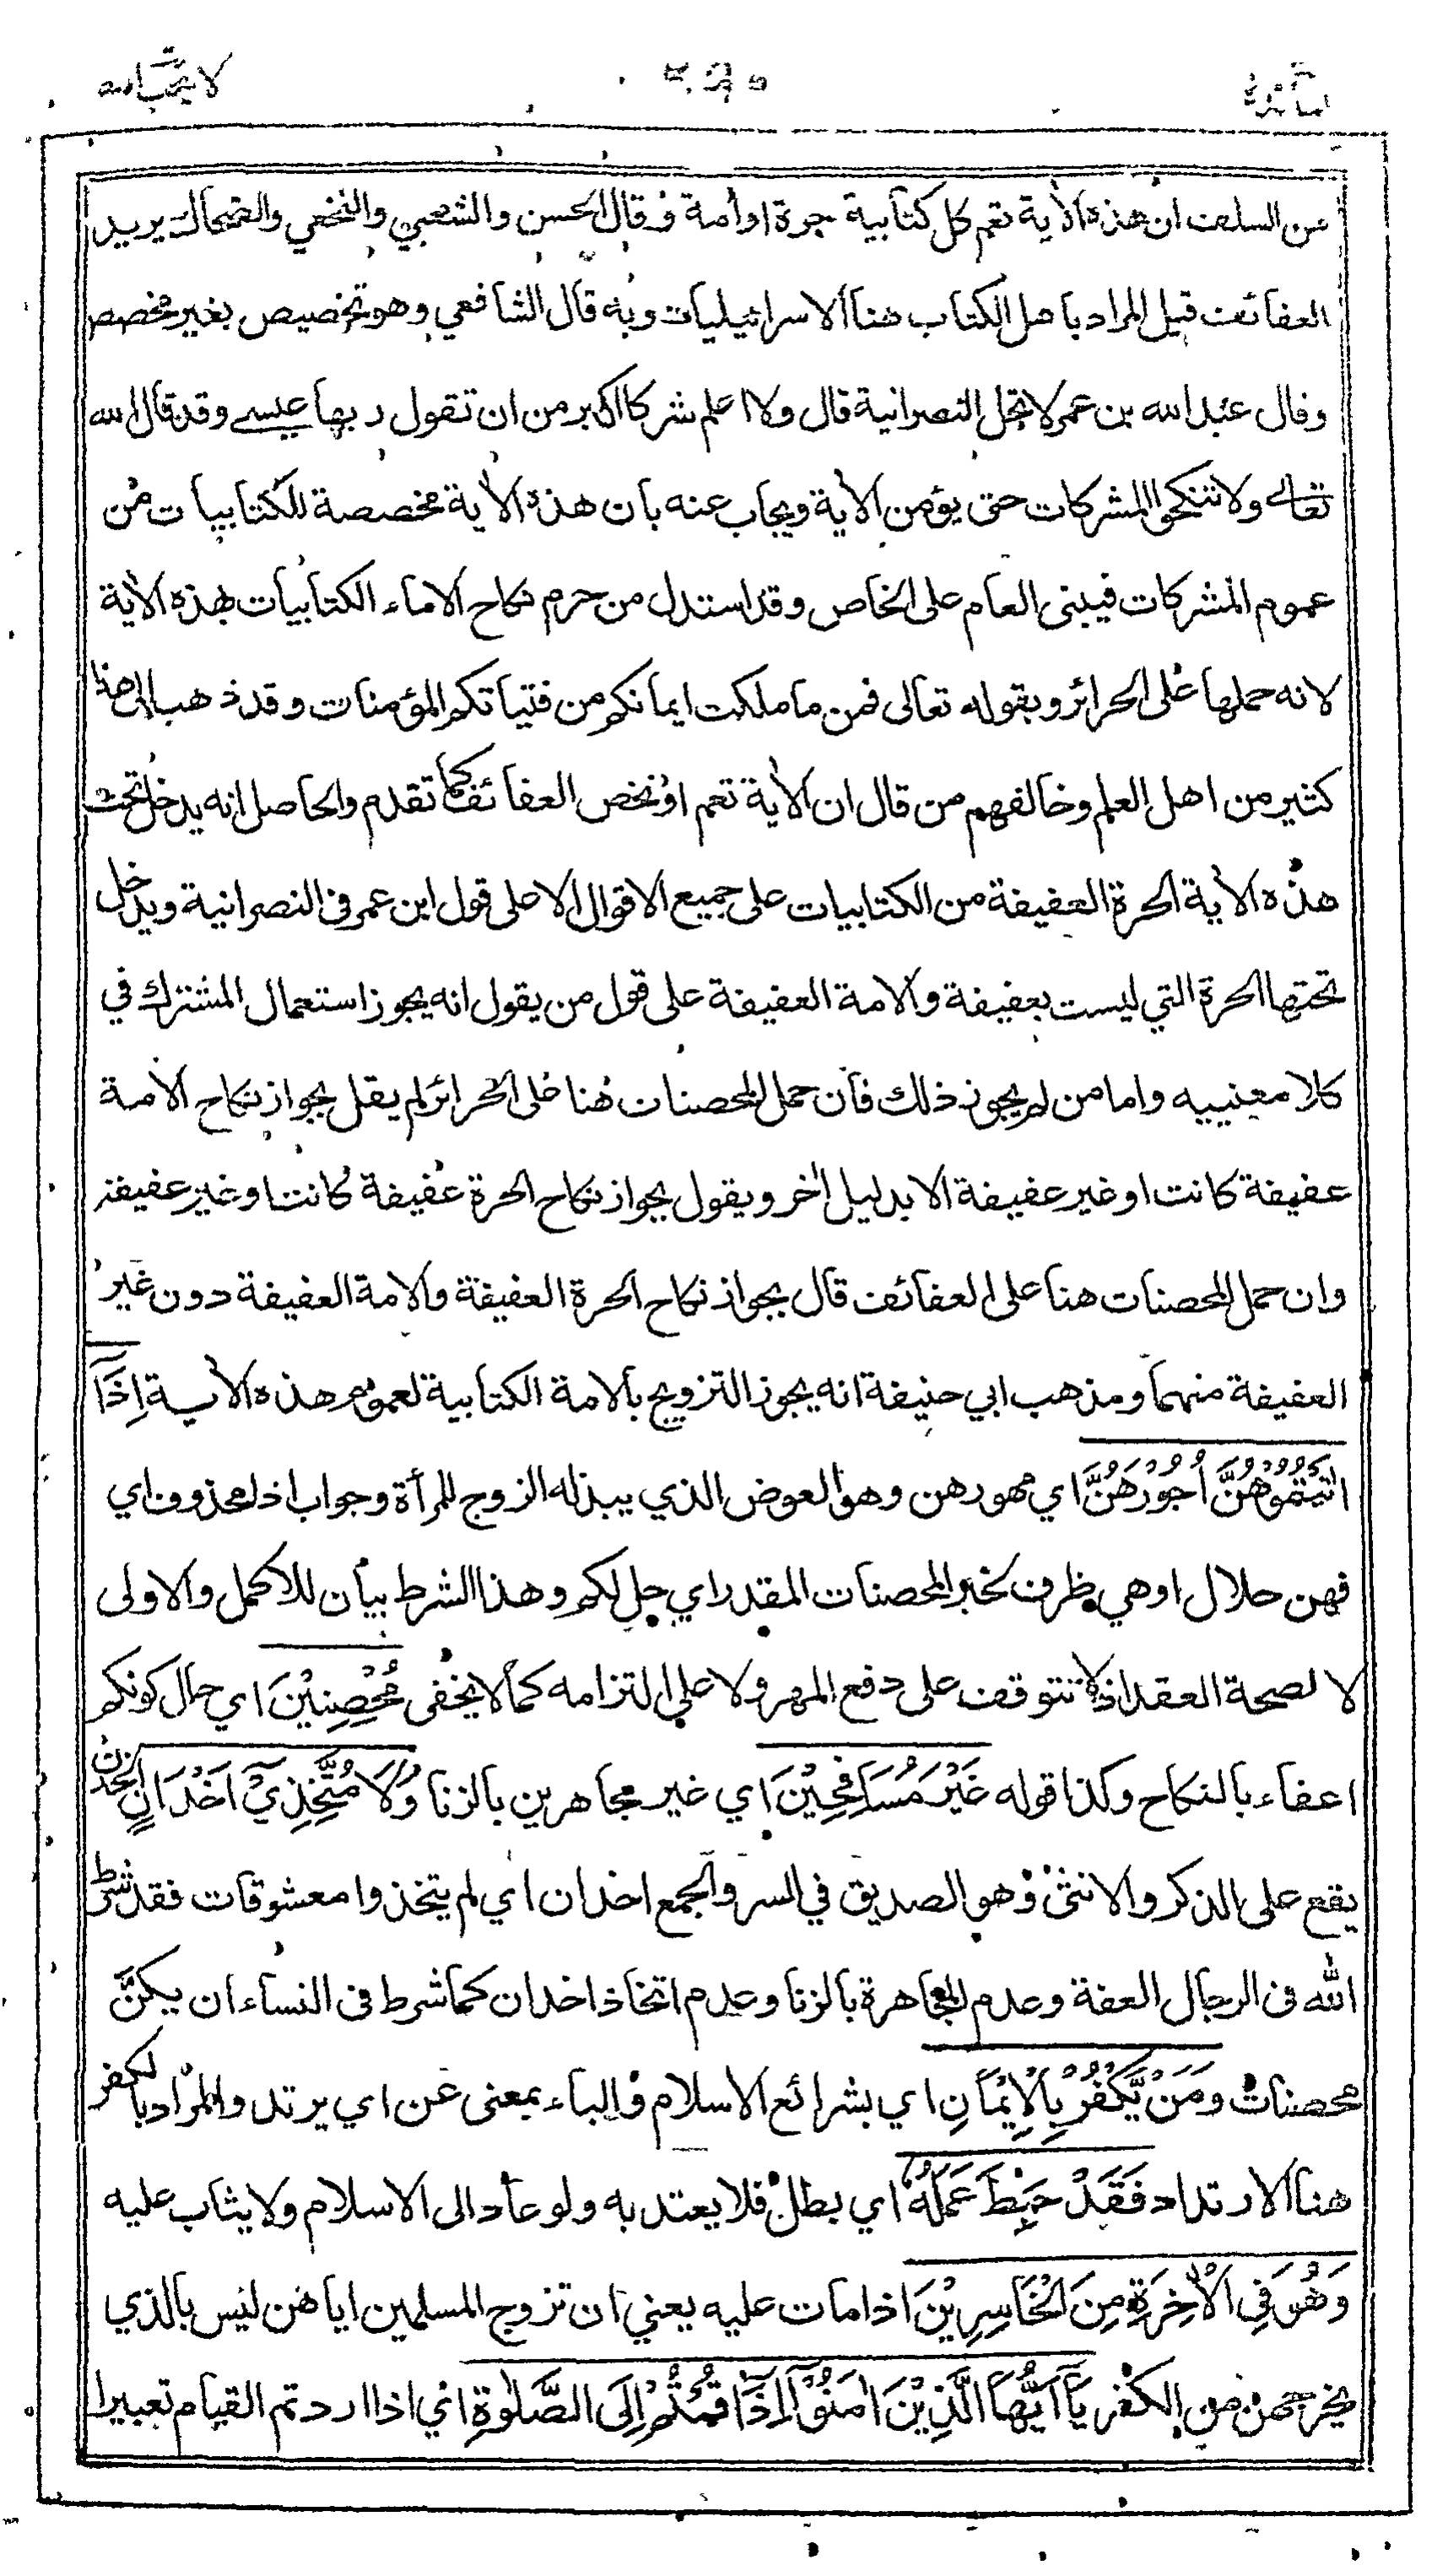 لا يحب الله
المائدة
من السلف ان هذه الاٰية تعم كل كتابية حرة او أمة وقال الحسن والشعبي والنخعي والضحاك يريد
العفائف قيل المراد باهل الكتاب هنا الاسرائيليات وبه قال الشافعي وهو تخصيص بغير مخصص
وقال عبد الله بن عمر لا تحل النصرانية قال ولا اعلم شركا اكبر من ان تقول ربها عيسى وقد قال الله
تعالى ولا تنكحوا المشركات حتى يؤمن الاٰية ويجاب عنه بان هذه الاٰية مخصصة للكتابيات من
عموم المشركات فيبنى العام على الخاص وقد استدل من حرم نكاح الاماء الكتابيات بهذه الاٰية
لانه حملها على الحرائر وبقوله تعالى فمن ما ملكت ايمانكم من فتياتكم المؤمنات وقد ذهب الى هذا
كثير من اهل العلم وخالفهم من قال ان الاٰية تعم او تخص العفائف كما تقدم والحاصل انه يدخل تحت
هذه الاٰية الحرة العفيفة من الكتابيات على جميع الاقوال الا على قول ابن عمر في النصرانية ويدخل
تحتها الحرة التي ليست بعفيفة والامة العفيفة على قول من يقول انه يجوز استعمال المشترك في
كلا معنييه واما من لم يجوز ذلك فان حمل المحصنات هنا على الحرائر لم يقل بجواز نكاح الامة
عفيفة كانت او غير عفيفة الا بدليل اٰخر ويقول بجواز نكاح الحرة عفيفة كانت او غير عفيفة
وان حمل المحصنات هنا على العفائف قال بجواز نكاح الحرة العفيفة والامة العفيفة دون غير
العفيفة منهما ومذهب ابي حنيفة انه يجوز التزويج بالامة الكتابية لعموم هذه الاٰية اِذَآ
اٰتَيْتُمُوْهُنَّ اُجُوْرَهُنَّ اي مهورهن وهو العوض الذي يبذله الزوج للمرأة وجواب اذا محذوف اي
فهن حلال او هي ظرف لخبر المحصنات المقدر اي حل لكم وهذا الشرط بيان للاكمل والاولى
لا لصحة العقد اذ لا تتوقف على دفع المهر ولا على التزامه كما لا يخفى مُحْصِنِيْنَ اي حال كونكم
اعفاء بالنكاح وكذا قوله غَيْرَ مُسَافِحِيْنَ اي غير مجاهرين بالزنا وَلَا مُتَّخِذِيْٓ اَخْدَانٍ الخدن
يقع على الذكر والانثى وهو الصديق في السر والجمع اخدان اي لم يتخذوا معشوقات فقد شرط
الله في الرجال العفة وعدم المجاهرة بالزنا وعدم اتخاذ اخدان كما شرط في النساء ان يكنَّ
محصنات وَمَنْ يَّكْفُرْ بِالْاِيْمَانِ اي بشرائع الاسلام والباء بمعنى عن اي يرتد والمراد بالكفر
هنا الارتداد فَقَدْ حَبِطَ عَمَلُهٗ اي بطل فلا يعتد به ولو عاد الى الاسلام ولا يثاب عليه
وَهُوَ فِي الْاٰخِرَةِ مِنَ الْخَاسِرِيْنَ اذا مات عليه يعني ان تزوج المسلمين اياهن ليس بالذي
يخرجهن من الكفر يَآ اَيُّهَا الَّذِيْنَ اٰمَنُوْٓا اِذَا قُمْتُمْ اِلَى الصَّلٰوةِ اي اذا اردتم القيام تعبيرا